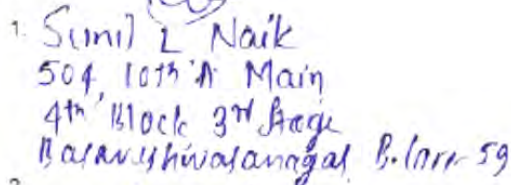 1. Sunil L Naik
504, 10th 'A' Main
4th Block 3rd Stage
Basaveshwaranagar B.lore 59